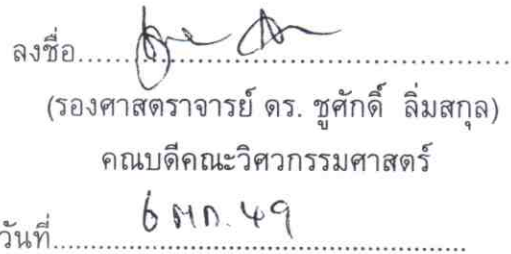 ลงชื่อ........................................................
(รองศาสตราจารย์ ดร. ชูศักดิ์ ลิ่มสกุล)
คณบดีคณะวิศวกรรมศาสตร์
วันที่ 6 ตค. 49